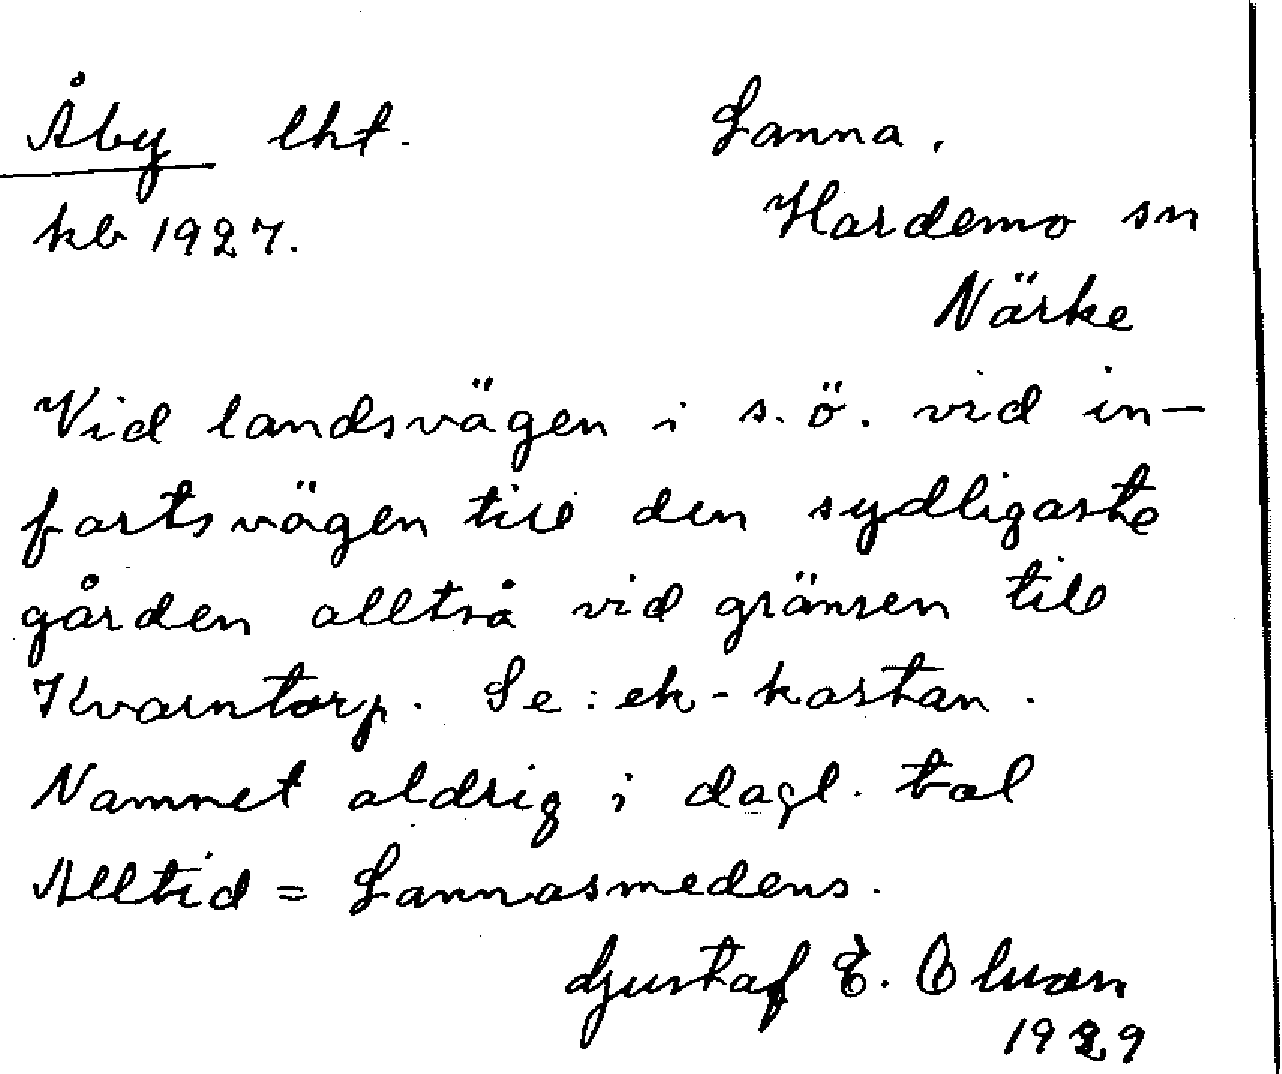 Åby lht. Lanna.
kb 1927. Hardemo sn
Närke
Vid landsvägen i s.ö. vid in-
fartsvägen till den sydligaste
gården alltså vid gränsen till
Kvarntorp. Se: ek-kastan.
Namnet aldrig i dagl. tal
Alltid = Lannasmedens.
Gustaf E.
1929